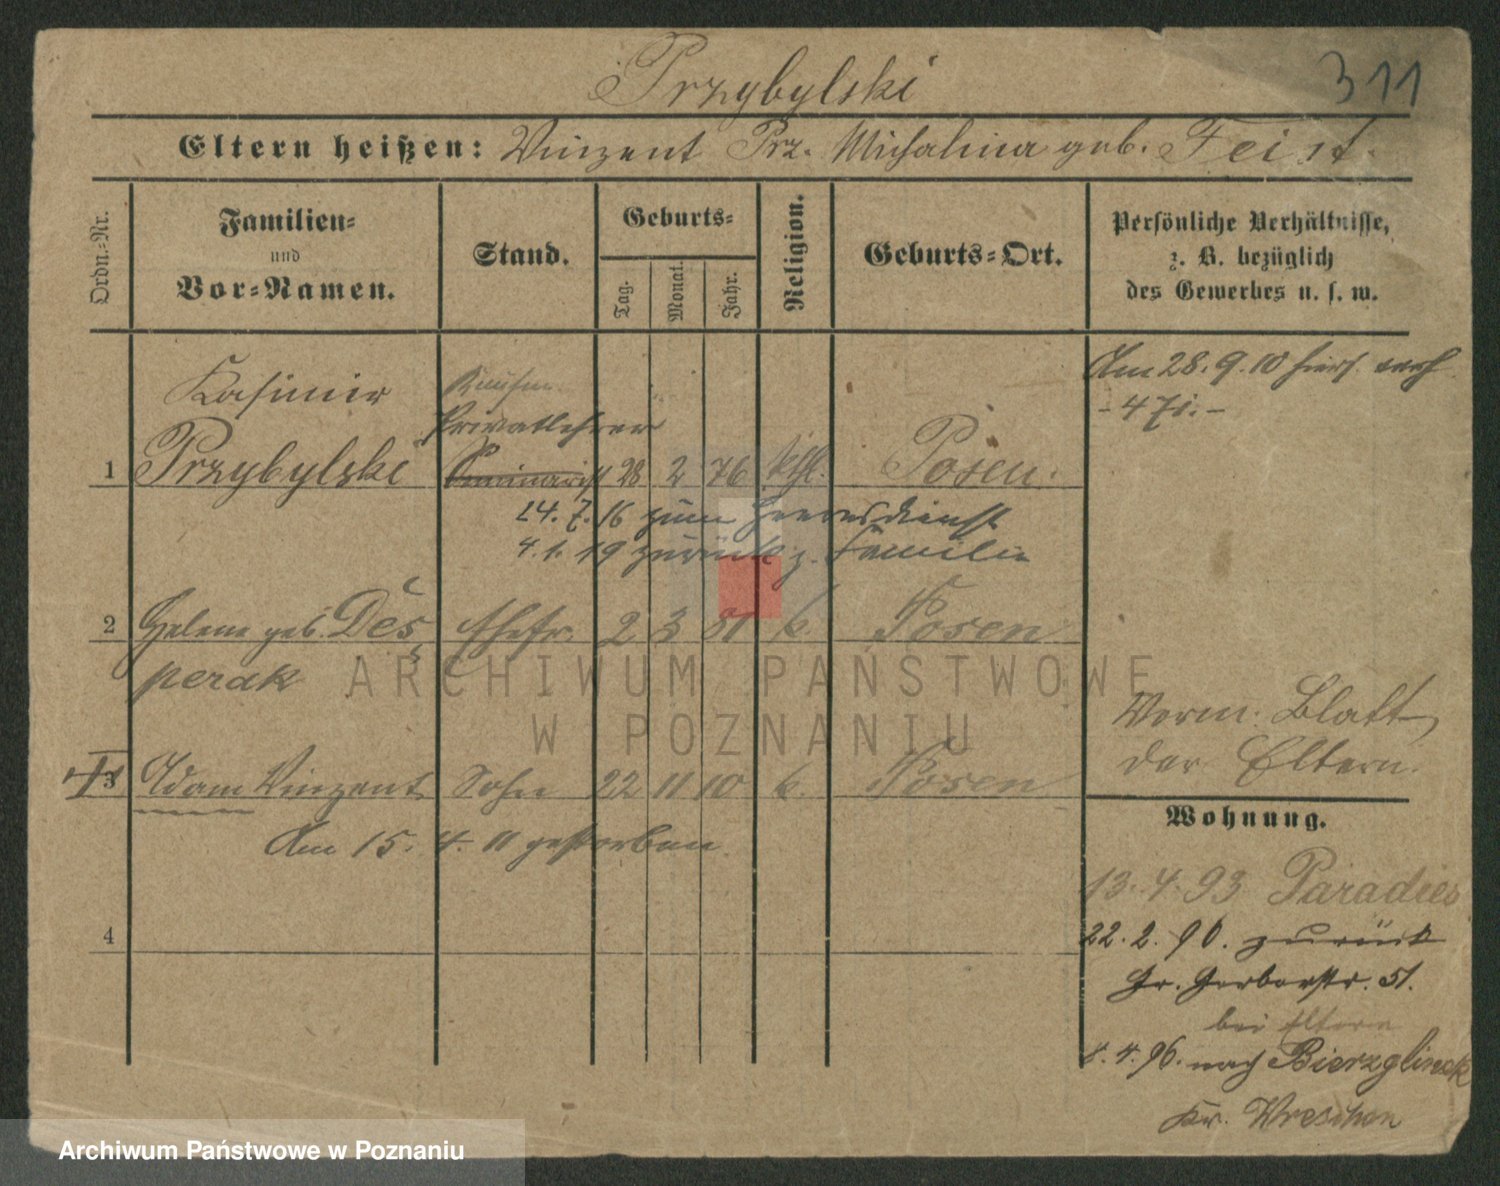 Przybylski
311
Eltern heißen: Vinzent Prz. Michalina geb. Feist.
Ordn.-Nr.
Familien-
und
Vor-Namen.
Stand.
Geburts-
Tag.
Monat.
Jahr.
Religion.
Geburts-Ort.
Persönliche Verhältnisse,
z. B. bezüglich
des Gewerbes u. s. w.
Kasimir
Privatlehrer
1 Przybylski Seminarist 28 2 76 kth. Posen.
24. 7. 16 zum Heeresdienst
4. 1. 19 zurück z. Familie
2 Helene geb. Des Ehefr. 2 3 81 k. Posen
perak
3 Adam Vinzent Sohn 22 11 10 k. Posen
Am 15. 4. 11 gestorben.
4
Am 28. 9. 10 hiers. nach
- 471. -
Verm. Blatt
der Eltern.
Wohnung.
13. 4. 93 Paradies
22. 2. 96. zurück
Gr. Gerberstr. 51.
bei Eltern
8. 4. 96. nach Bierzglinek
Kr. Wreschen
ARCHIWUM PAŃSTWOWE
W POZNANIU
Archiwum Państwowe w Poznaniu